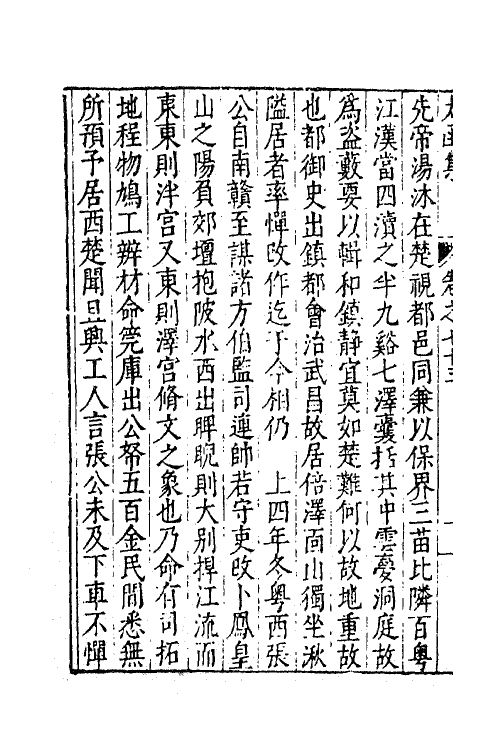 太函集　卷之七十三
先帝湯沐在楚視都邑同兼以保界三苗比隣百粤
江漢當四瀆之半九谿七澤囊括其中雲夢洞庭故
為盗藪要以輯和鎮靜宜莫如楚難何以故地重故
也都御史出鎮都會治武昌故居倍澤面山獨坐湫
隘居者率憚改作迄于今相仍　上四年冬粤西張
公自南贛至謀諸方伯監司連帥若守吏改卜鳳皇
山之陽負郊壇抱陂水西出睥睨則大别捍江流而
東東則泮宫又東則澤宫脩文之象也乃命有司拓
地程物鳩工辨材命筦庫出公帑五百金民間悉無
所預予居西楚聞且興工人言張公未及下車不憚